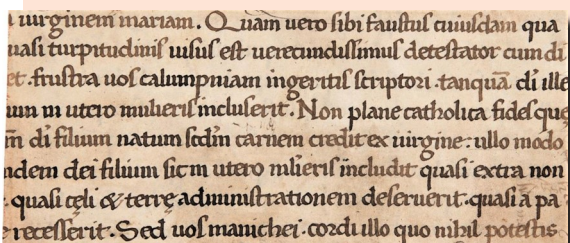 uirginem mariam. Quam uero sibi faustus cuiusdam qua
uasi turpitudinis uisus est uerecundissimus detestator cum di
et. frustra uos calumpniam ingeritis scriptori. tanquā di ille
um in utero mulieris incluserit. Non plane catholica fides que
di filium natum scdm carnem credit ex uirgine: ullo modo
ndem dei filium sic in utero mlieris includit quasi extra non
. quasi cęli & terrę administrationem deseruerit. quasi a pa
e recesserit. Sed uos manichei. cordi illo quo nihil potestis